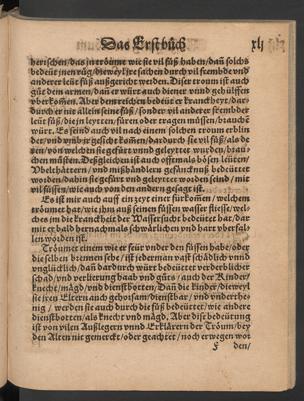 Das Erst büch xlj
herischen/das jn tröume wie sie vil füß haben/dañ solchs
bedeüt jnen rüg/dieweyl jre sachen durch vil frembde vnd
anderer leüt füß außgericht werden. Diser troum ist auch
güt den armen/dañ er würt auch diener vnd gehülffen
vberkommen. Aber dem reichen bedeüt er kranckheyt/dar
durch er nit allein seine füß/sonder vil anderer frembder
leüt füß/die jn leytten/füren oder tragen müssen/brauchē
würt. Es seind auch vil nach einem solchen troum erblin
det/vnd vmb jr gesicht kommen/dardurch sie vil füß/als de
ren/von welchen sie gefürt vnd geleytet wurden/brau-
chen müsten. Deßgleichen ist auch offtmals bösen leüten/
Vbelthättern/vnd mißhändlern gefäncknuß bedeüttet
worden/dahin sie gefürt vnd geleytet worden seind/mit
vil füssen/wie auch von den andern gesagt ist.
Es ist mir auch auff ein zeyt einer fürkomen/welchem
tröumet hat/wie jhm auß seinen füssen wasser fliesse/wel-
ches jm die kranckheit der Wassersucht bedeütet hat/dar
mit er bald hernachmals schwärlichen vnd hart vberfal-
len worden ist.
Tröumet einem wie er feür vnder den füssen habe/oder
die selben brennen sehe/ist jederman vast schädlich vnnd
vnglücklich/dañ dardurch würt bedeüttet verderblicher
schad/vnd verlierung haab vnd güts/auch der Kinder/
knecht/mägd/vnd dienstbotten/Dañ die kinder/dieweyl
sie jren Eltern auch gehorsam/dienstbar/vnd vnderthe-
nig/werden sie auch durch die füß bedeüttet/wie andere
dienstbotten/als knecht vnd mägd. Aber dise bedeütung
ist von vilen Außlegern vnnd Erklärern der Tröum/bey
den Alten nit gemerckt/oder geachtet/noch erwegen wor
den/